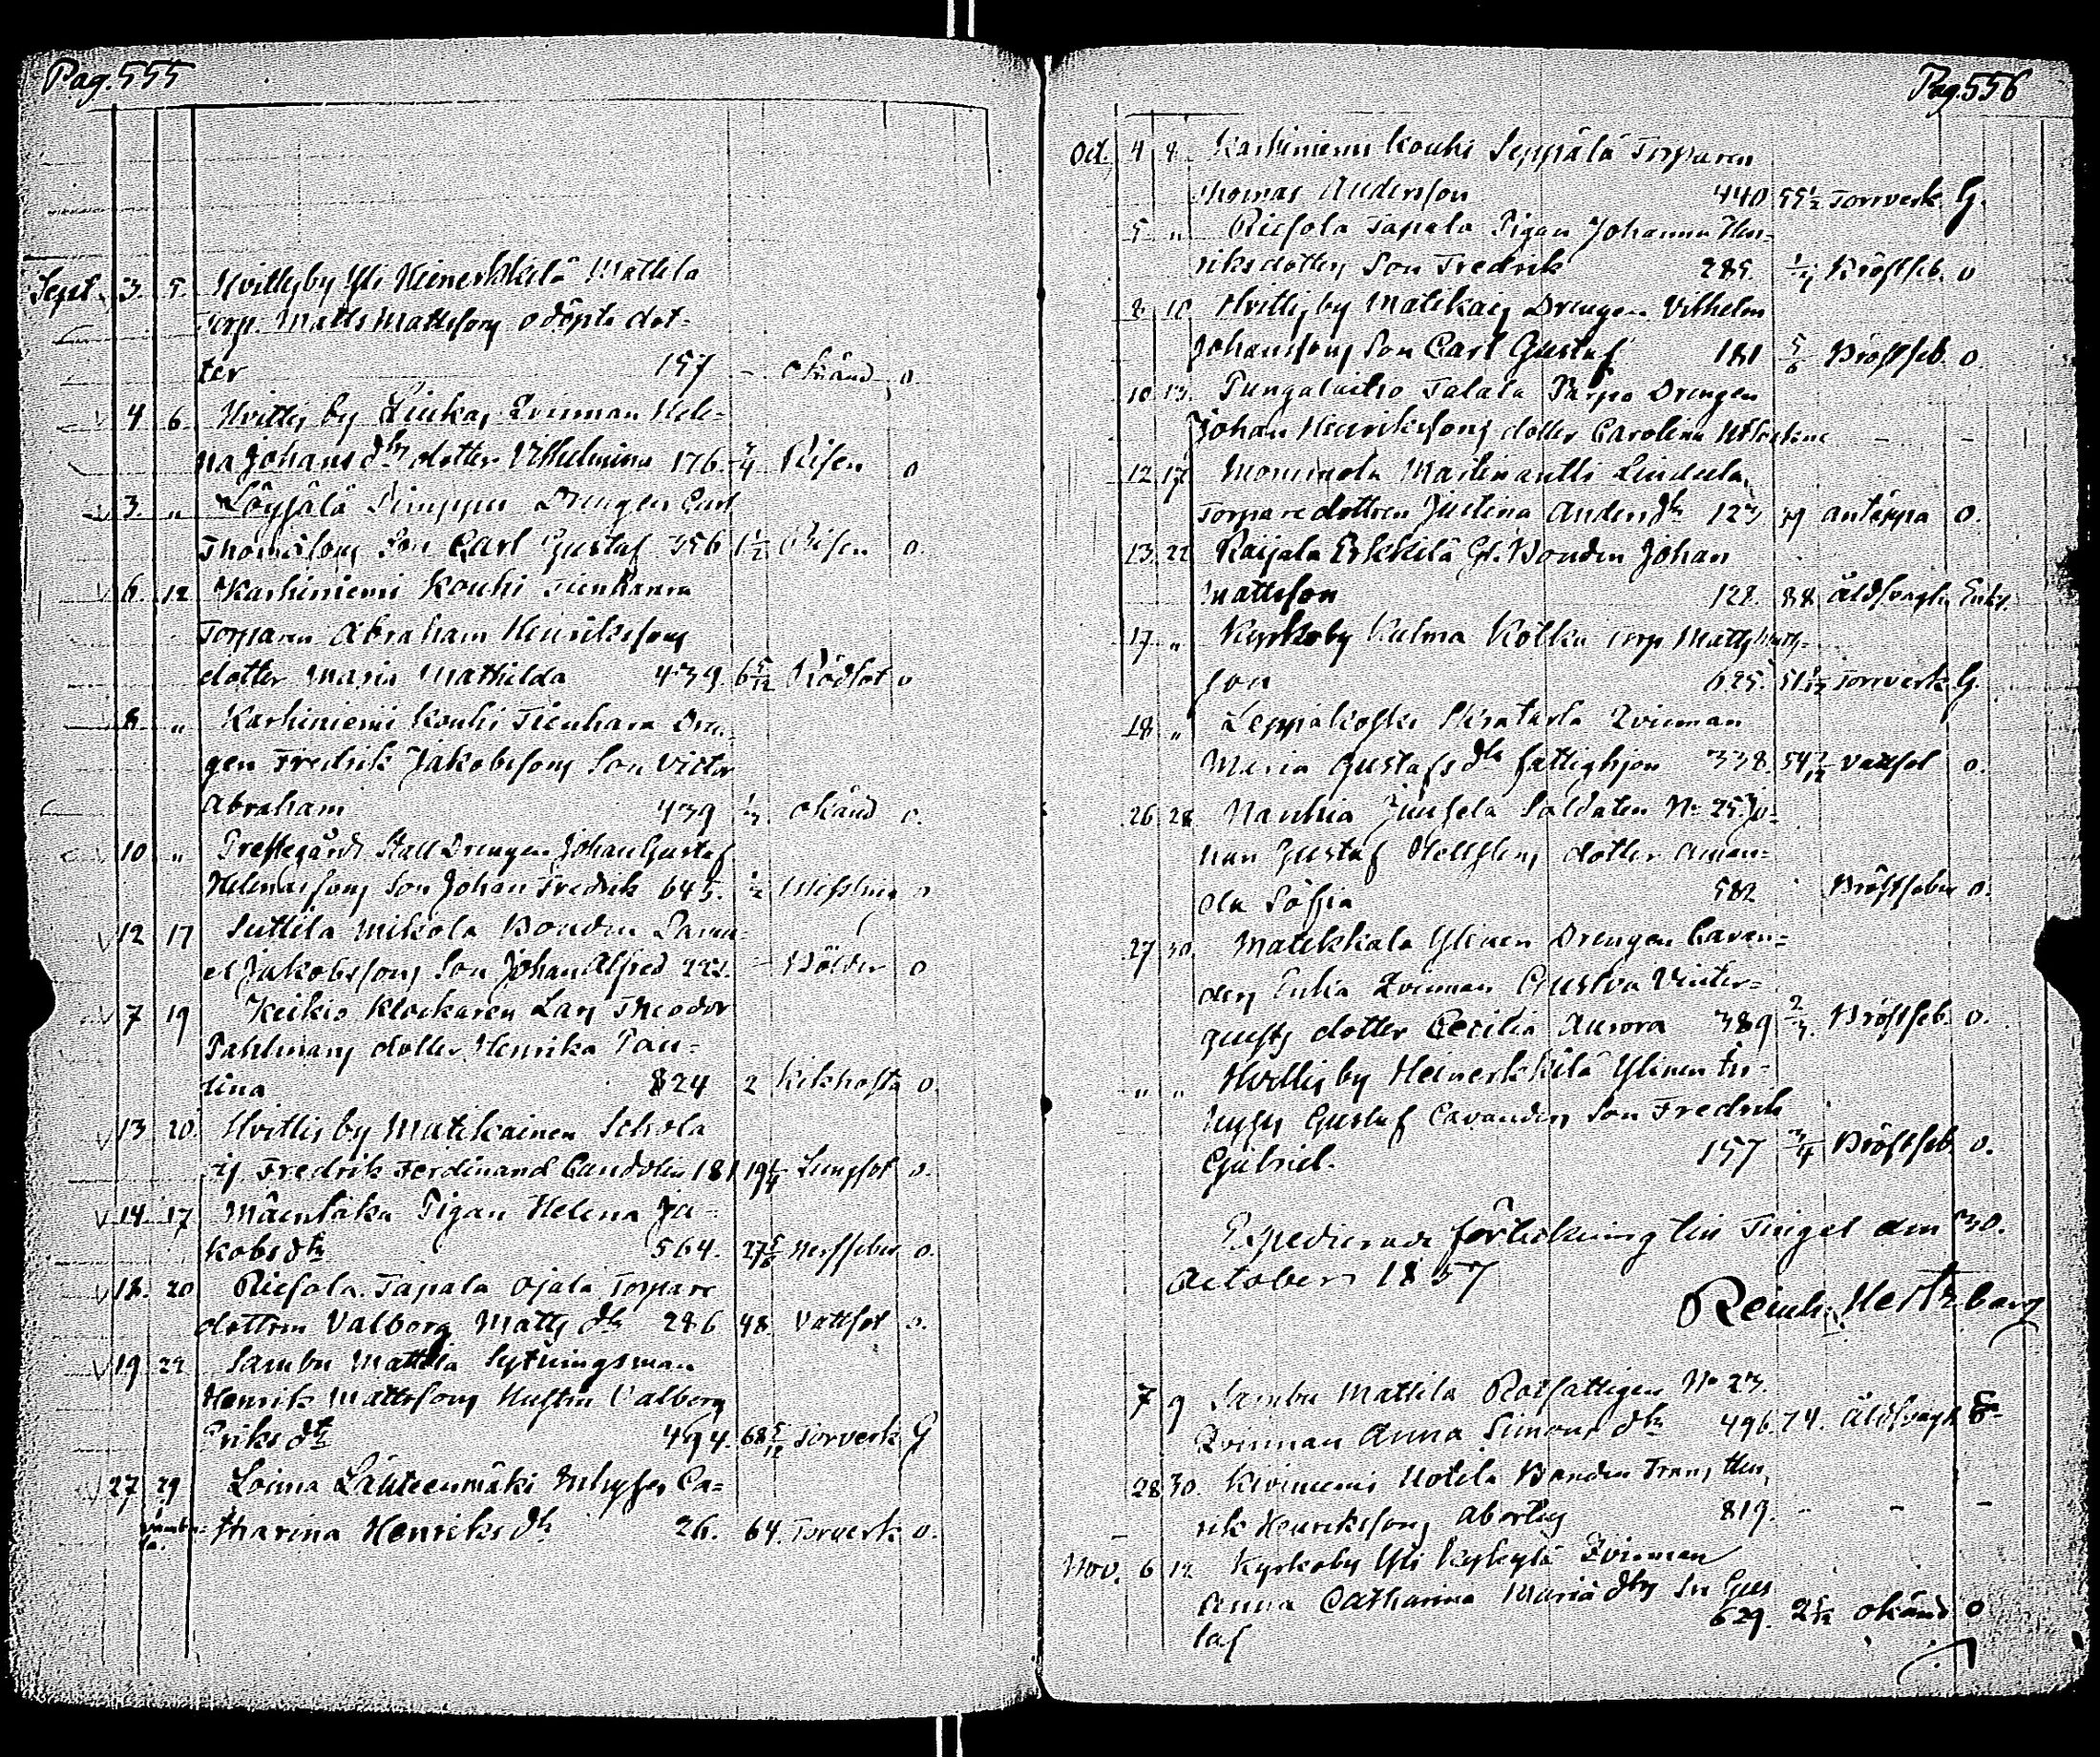 Pag. 555
Sept. 3. 5. Hvittis by Yli Heinerkkilä Mattila
Torp. Matts Mattssons odöpta dot-
ter 157 - okänd o.
4 6 Hvittis by Qvinnan Hele-
na Johans dtrs dotter Vilhelmina 176. Risen o
3. " Löysälä Drengen Carl
Thomssons Son Carl Gustaf 356 1 1/2 Risen o.
6. 12 Karhiniemi Kouhi Tienhaara
Torparen Abraham Henrikssons
dotter Maria Mathilda 439. 6 5/12 Rödsot o
8 " Karhiniemi Kouhi Tienhara Dren-
gen Fredrik Jakobssons Son Victor
Abraham 439 okänd o.
10 " Prestegårds Stall Drengen Johan Gustaf
Helenassons Son Johan Fredrik 645. 1/2 o
12 17 Suttila Mikola Bonden Samu-
el Jakobssons Son Johan Alfred 222. - Bölder o
7 19 Keikio Klockaren Lars Theodor
Pahlmans dotter Henrika Pau-
lina 824 2 Kikhosta o.
13 20. Hvittis by Matikainen Schola
rij. Fredrik Ferdinand 181 19 1/4 Lungsot o.
14 17 Mäenlaka Pigan Helena Ja-
kobs dtr 564. 27 5/6 Nerffeber o.
18. 20 Riesola Tapala Ojala Torpare
dottren Valborg Matts dtr 286 48. Vattsot o.
19 22 Sambu Mattila Sytningsman
Henrik Mattssons Hustru Valborg
Eriks dtr 494. 68 5/12 Torverk G
27 29 Loima Lähteenmäki Inhyses Ca-
tharina Henriks dtr 26. 64. Torverk o.
Pag. 556
Oct. 4 8 Karhiniemi Kouhi Seppälä Torparen
Thomas Andersson 440. 55 1/2 Torrverk. G.
5 " Riesola Tapala Pigan Johanna Hen-
riksdotters Son Fredrik 285. Bröstfeb. o
8 10 Hvittis by Matikais Drengen Vilhelm
Johanssons Son Carl Gustaf 181 5/6 Bröstfeb. o.
10 13. Pungalaitio Talala Drengen
Johan Henrikssons dotter Carolina - -
12 17 Mommola Martinantti
Torpare dottren Justina Anders dtr 123 antäppa o.
13. 22 Raijala Erkkilä Gl. Bonden Johan
Mattsson 122. 88 ålderdomsbr. Enkl.
17. " Kyrkoby Kulma Kölkä Torp Matts Matts-
son 625. Torrverk G.
18 " Leppäkoski Qvinnan
Maria Gustafs dtr fattighjon 338. 54 Vattsot o.
26 28 Nanhia Juusela Soldaten No 25. Jo-
han Gustaf dotter Aman-
da Sofia 582 Bröstfeber o.
27 30. Matikkala Ylinen Drengen Cavan-
ders Enka Qvinnan Gustva Vinter-
qvists dotter Cecilia Aurora 389 2/3. Bröstfeb. o.
" " Hvittis by Heinerkkilä Ylinen In-
hyses Gustaf Cavanders Son Fredrik
Gabriel. 157 3/4 Bröstfeb. o.
Expedierade förteckning till Tinget den 30.
October 1857
Reinh. Hertzberg
7 9 Sambu Mattila Rotfattigen No 23.
Qvinnan Anna Simons dtr 496. 74. E
28 30. Kiviniemi Uotila Bonden Frans Hen
rik Henrikssons abortus 819. - - -
Nov. 6 12 Kyrkoby Yli Kyleylä Qvinnan
Anna Catharina Maria dtrs Son Gus
taf 629. 2 5/12 okänd o